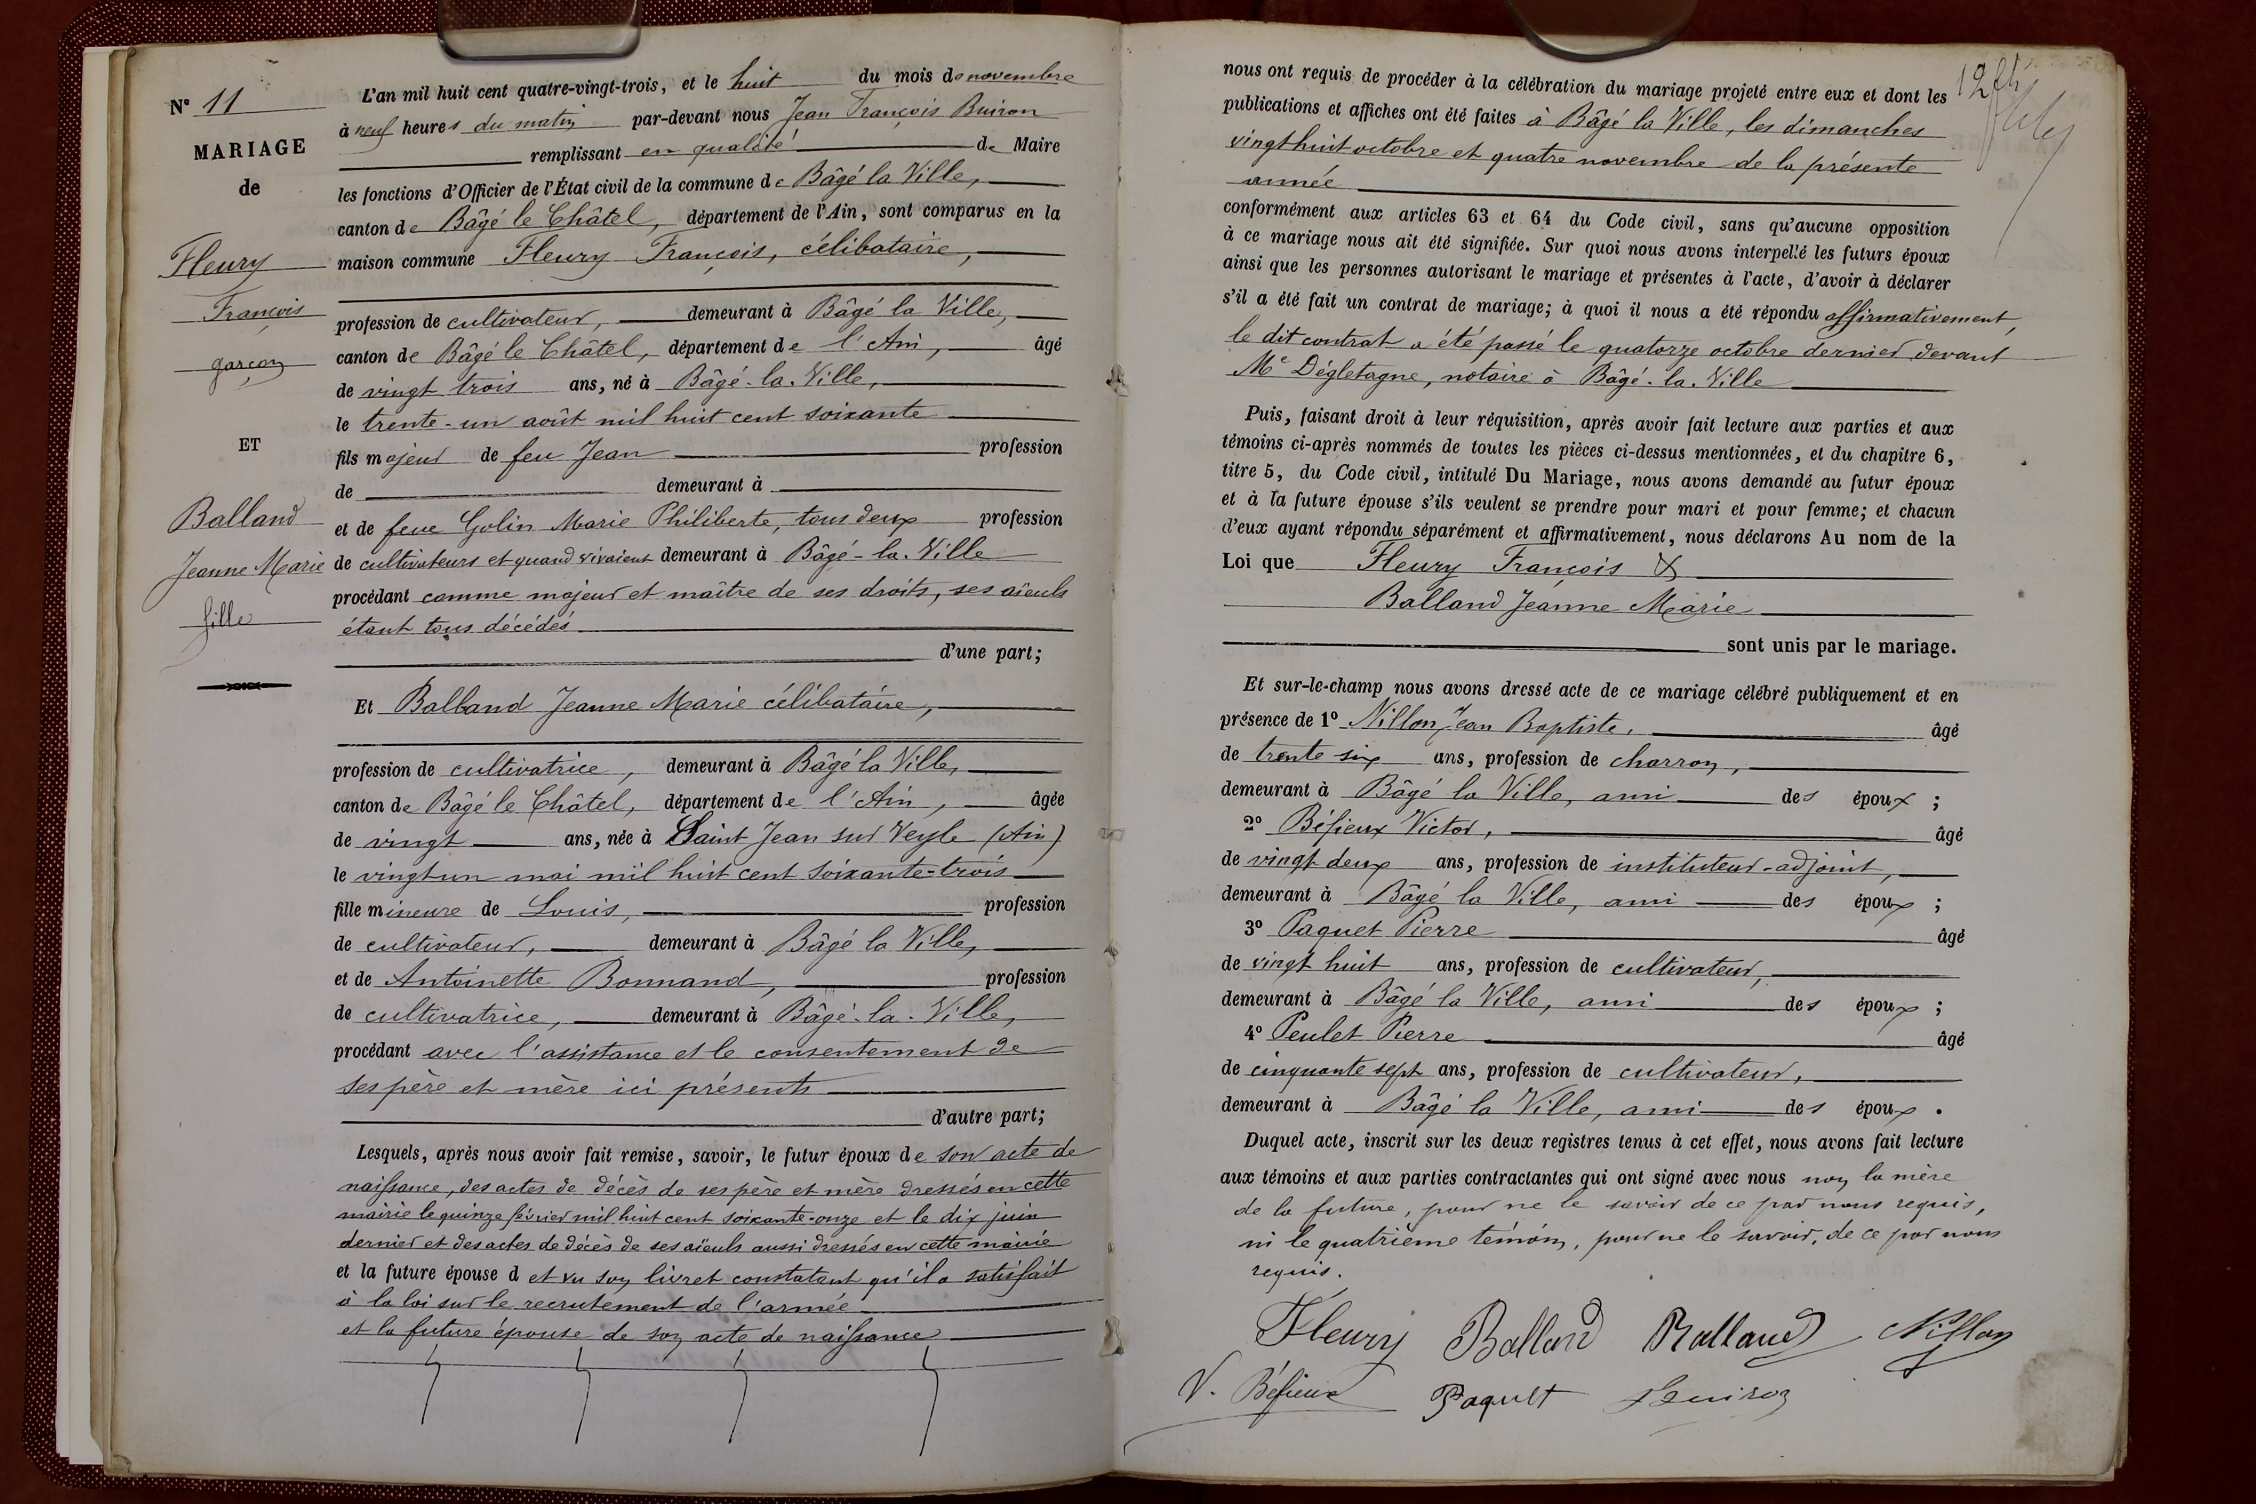 N° 11
MARIAGE
de
Fleury
François
garçon
ET
Balland
Jeanne Marie
fille
L'an mil huit cent quatre-vingt-trois, et le huit du mois de novembre
à neuf heures du matin par-devant nous Jean François Buiron
remplissant en qualité de Maire
les fonctions d'Officier de l'État civil de la commune de Bâgé la Ville,
canton de Bâgé le Châtel, département de l'Ain, sont comparus en la
maison commune Fleury François, célibataire,
profession de cultivateur, demeurant à Bâgé la Ville,
canton de Bâgé le Châtel, département de l'Ain, âgé
de vingt trois ans, né à Bâgé-la-Ville,
le trente-un août mil huit cent soixante
fils majeur de feu Jean profession
de demeurant à
et de feue Golin Marie Philiberte, tous deux profession
de cultivateurs et quand vivaient demeurant à Bâgé-la-Ville
procédant comme majeur et maître de ses droits, ses aïeuls
étant tous décédés
d'une part;
Et Balland Jeanne Marie célibataire,
profession de cultivatrice, demeurant à Bâgé la Ville,
canton de Bâgé le Châtel, département de l'Ain, âgée
de vingt ans, née à Saint Jean sur Veyle (Ain)
le vingt un mai mil huit cent soixante-trois
fille mineure de Louis, profession
de cultivateur, demeurant à Bâgé la Ville,
et de Antoinette Bonnand, profession
de cultivatrice, demeurant à Bâgé-la-Ville,
procédant avec l'assistance et le consentement de
ses père et mère ici présents
d'autre part;
Lesquels, après nous avoir fait remise, savoir, le futur époux de son acte de
naissance, des actes de décès de ses père et mère dressés en cette
mairie le quinze février mil huit cent soixante-onze et le dix juin
dernier et des actes de décès de ses aïeuls aussi dressés en cette mairie
et la future épouse d et vu son livret constatant qu'il a satisfait
à la loi sur le recrutement de l'armée
et la future épouse de son acte de naissance
nous ont requis de procéder à la célébration du mariage projeté entre eux et dont les
publications et affiches ont été faites à Bâgé la Ville, les dimanches
vingt huit octobre et quatre novembre de la présente
année
conformément aux articles 63 et 64 du Code civil, sans qu'aucune opposition
à ce mariage nous ait été signifiée. Sur quoi nous avons interpellé les futurs époux
ainsi que les personnes autorisant le mariage et présentes à l'acte, d'avoir à déclarer
s'il a été fait un contrat de mariage; à quoi il nous a été répondu affirmativement,
le dit contrat a été passé le quatorze octobre dernier devant
Me Dégletagne, notaire à Bâgé-la-Ville
Puis, faisant droit à leur réquisition, après avoir fait lecture aux parties et aux
témoins ci-après nommés de toutes les pièces ci-dessus mentionnées, et du chapitre 6,
titre 5, du Code civil, intitulé Du Mariage, nous avons demandé au futur époux
et à la future épouse s'ils veulent se prendre pour mari et pour femme; et chacun
d'eux ayant répondu séparément et affirmativement, nous déclarons Au nom de la
Loi que Fleury François &
Balland Jeanne Marie
sont unis par le mariage.
Et sur-le-champ nous avons dressé acte de ce mariage célébré publiquement et en
présence de 1° Nillon, Jean Baptiste, âgé
de trente six ans, profession de charron,
demeurant à Bâgé la Ville, ami des époux ;
2° Béfieux Victor, âgé
de vingt deux ans, profession de instituteur-adjoint,
demeurant à Bâgé la Ville, ami des époux ;
3° Paquet Pierre âgé
de vingt huit ans, profession de cultivateur,
demeurant à Bâgé la Ville, ami des époux ;
4° Peulet Pierre âgé
de cinquante sept ans, profession de cultivateur,
demeurant à Bâgé la Ville, ami des époux .
Duquel acte, inscrit sur les deux registres tenus à cet effet, nous avons fait lecture
aux témoins et aux parties contractantes qui ont signé avec nous non la mère
de la future, pour ne le savoir de ce par nous requis,
ni le quatrième témoin, pour ne le savoir, de ce par nous
requis.
Fleury Balland Balland Nillon
V. Béfieux Paquet Buiron